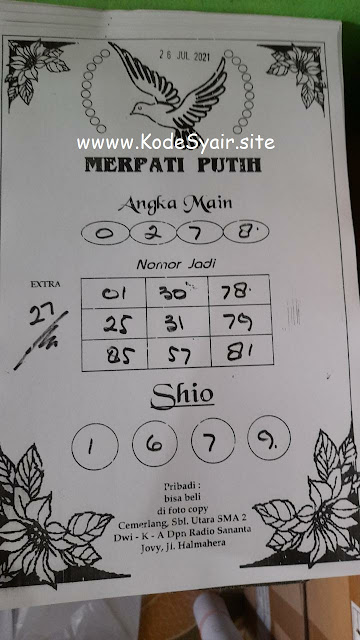 26 JUL 2021
www.KodeSyair.site
MERPATI PUTIH
Angka Main
0 2 7 8.
Nomor Jadi
EXTRA
27
01 30 78.
25 31 79
85 57 81
Shio
1 6 7 9.
Pribadi :
bisa beli
di foto copy
Cemerlang, Sbl. Utara SMA 2
Dwi - K - A Dpn Radio Sananta
Jovy, Jl. Halmahera